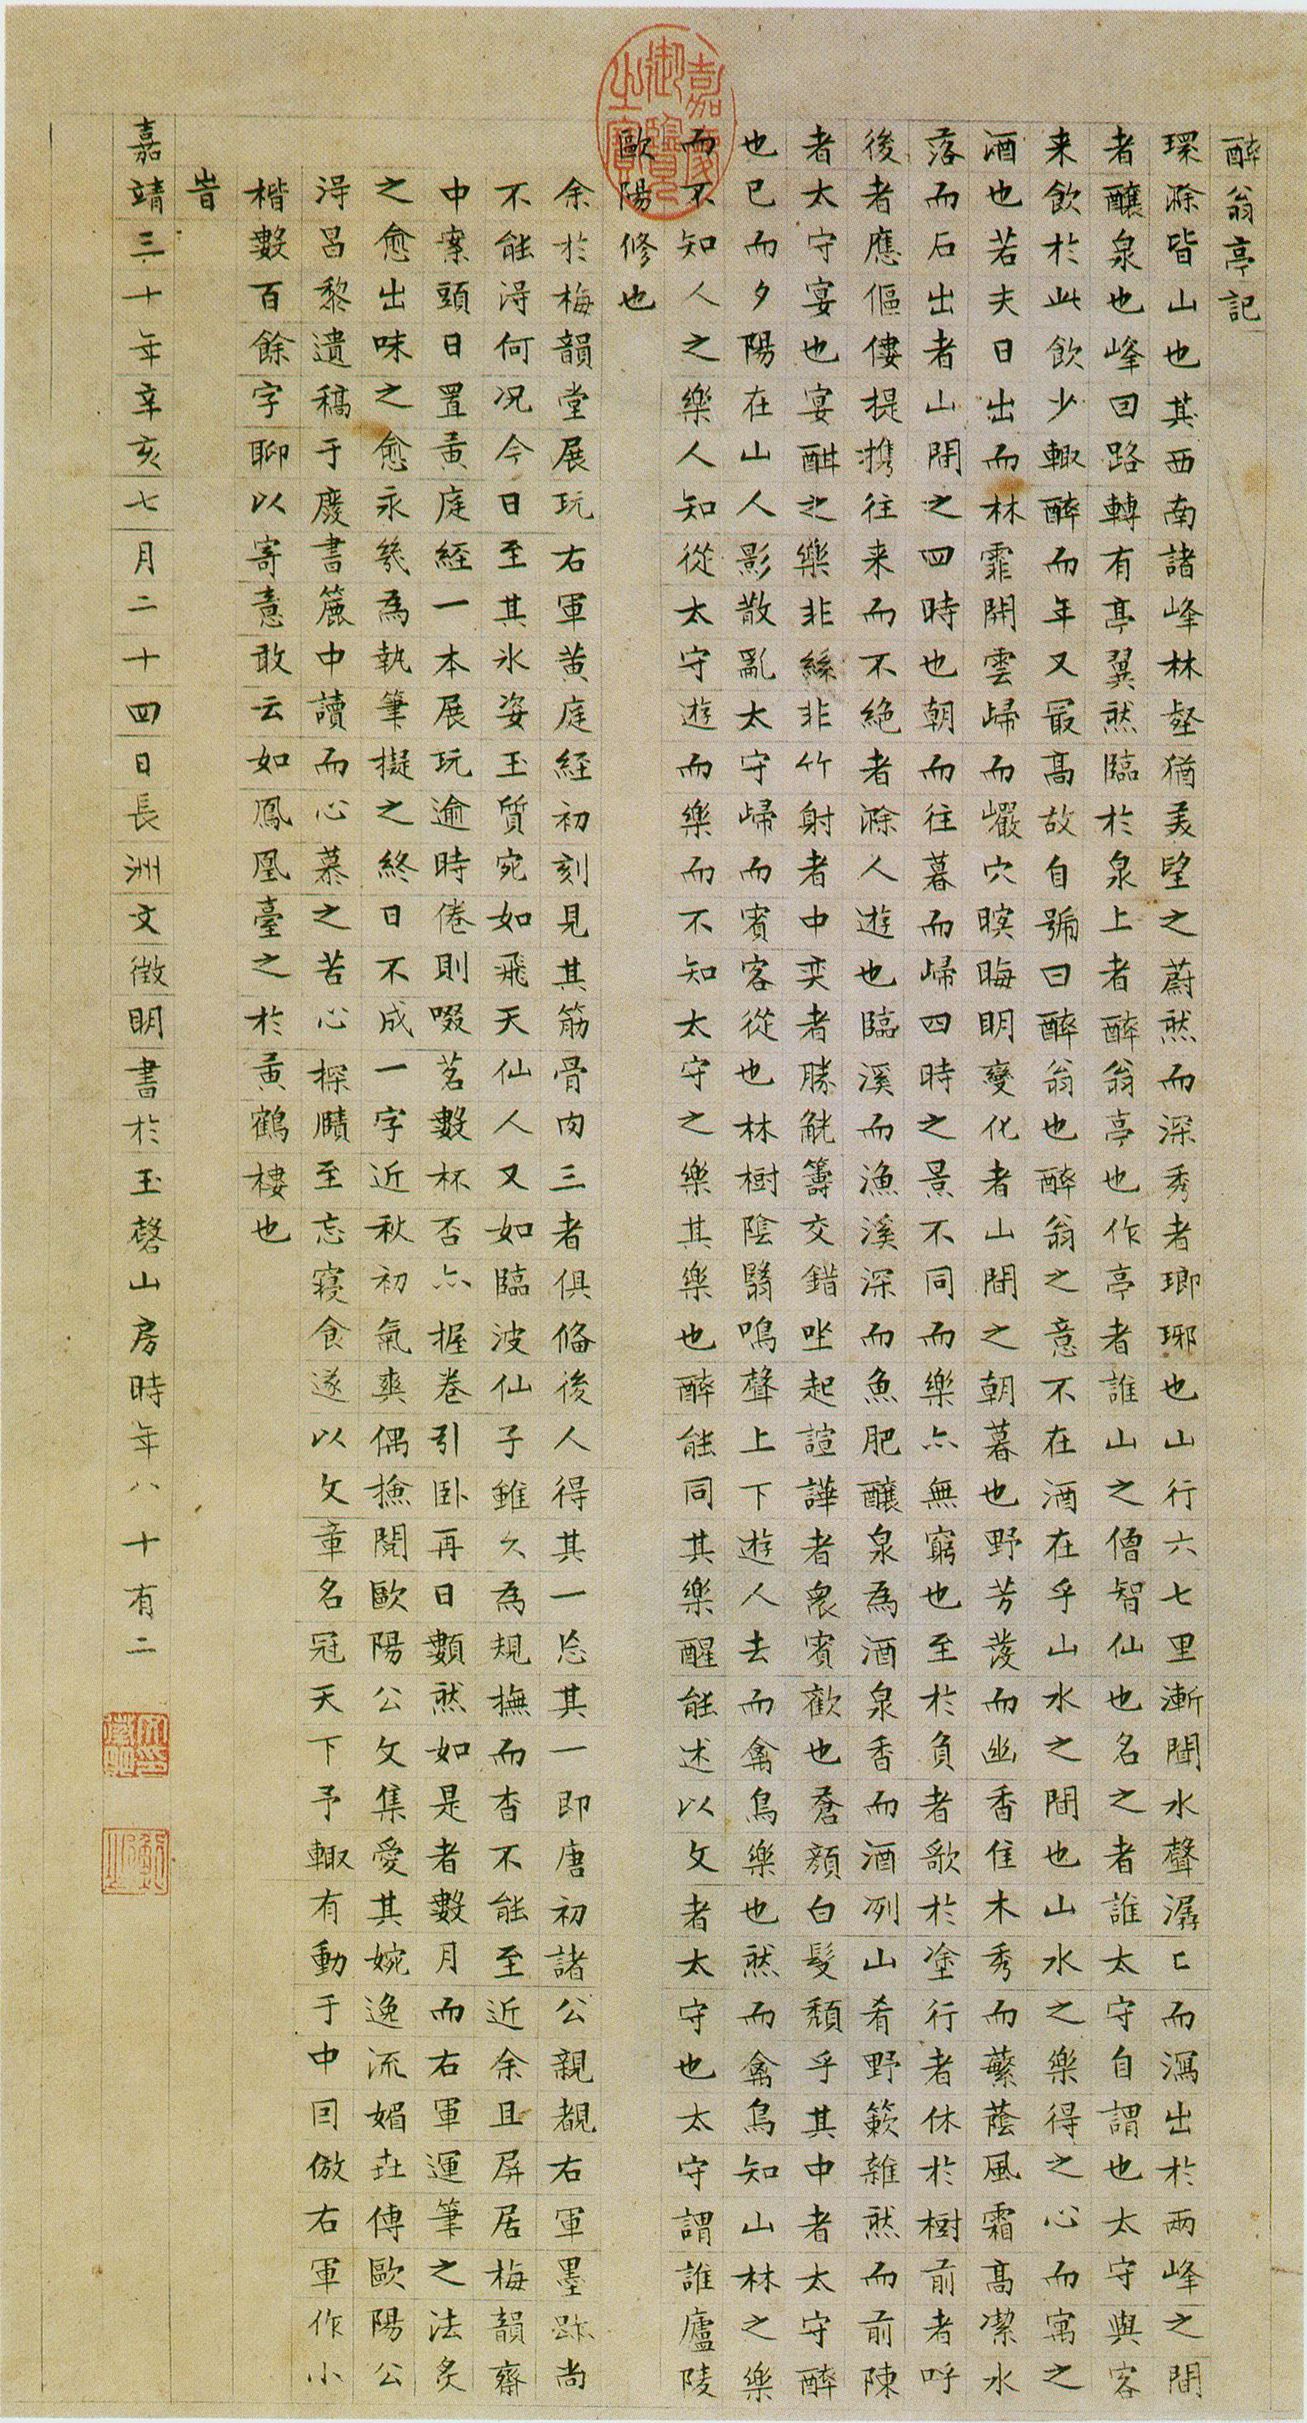 醉翁亭記
環滁皆山也其西南諸峰林壑猶美望之蔚然而深秀者瑯琊也山行六七里漸聞水聲潺〻而瀉出於兩峰之間
者釀泉也峰回路轉有亭翼然臨於泉上者醉翁亭也作亭者誰山之僧智仙也名之者誰太守自謂也太守與客
来飲於此飲少輒醉而年又最高故自號曰醉翁也醉翁之意不在酒在乎山水之間也山水之樂得之心而寓之
酒也若夫日出而林霏開雲歸而巖穴暝晦明變化者山間之朝暮也野芳發而幽香佳木秀而蘩蔭風霜高潔水
落而石出者山間之四時也朝而往暮而歸四時之景不同而樂亦無窮也至於負者歌於塗行者休於樹前者呼
後者應傴僂提攜往来而不絶者滁人遊也臨溪而漁溪深而魚肥釀泉為酒泉香而酒冽山肴野簌雜然而前陳
者太守宴也宴酣之樂非絲非竹射者中奕者勝觥籌交錯坐起諠譁者衆賓歡也蒼顏白髮頹乎其中者太守醉
也已而夕陽在山人影散亂太守歸而賓客從也林樹陰翳鳴聲上下遊人去而禽鳥樂也然而禽鳥知山林之樂
而不知人之樂人知從太守遊而樂而不知太守之樂其樂也醉能同其樂醒能述以文者太守也太守謂誰廬陵
歐陽修也
余於梅韻堂展玩右軍黄庭経初刻見其筋骨肉三者俱備後人得其一忘其一即唐初諸公親覩右軍墨跡尚
不能得何况今日至其氷姿玉質宛如飛天仙人又如臨波仙子雖久為規撫而杳不能至近余且屏居梅韻齋
中案頭日置黄庭経一本展玩逾時倦則啜茗數杯否亦握卷引卧再日數然如是者數月而右軍運筆之法炙
之愈出味之愈永幾為執筆擬之終日不成一字近秋初氣爽偶撿閱歐陽公文集愛其婉逸流媚丗傳歐陽公
得呂黎遺稿于廢書簏中讀而心慕之苦心探賾至忘寝食遂以文章名冠天下予輒有動于中因倣右軍作小
楷數百餘字聊以寄意敢云如鳳凰臺之於黄鶴樓也
旹
嘉靖三十年辛亥七月二十四日長洲文徵明書於玉磬山房時年八十有二
嘉慶御覽之寶